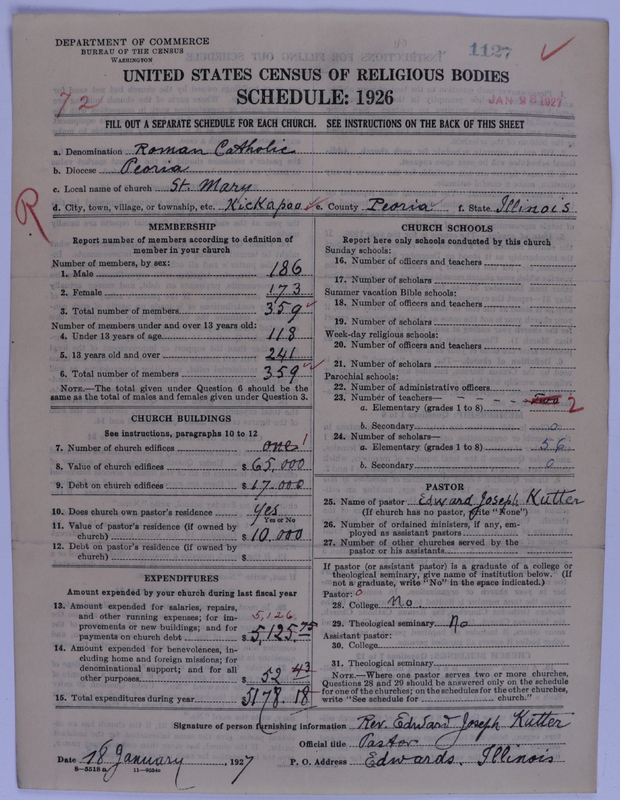 DEPARTMENT OF COMMERCE
BUREAU OF THE CENSUS
WASHINGTON
1127
UNITED STATES CENSUS OF RELIGIOUS BODIES
72
SCHEDULE: 1926
JAN 1927
FILL OUT A SEPARATE SCHEDULE FOR EACH CHURCH. SEE INSTRUCTIONS ON THE BACK OF THIS SHEET
a. Denomination Roman Catholic
b. Diocese Peoria
c. Local name of church St. Mary
d. City, town, village, or township, etc. Kickapoo e. County Peoria f. State Illinois
R
MEMBERSHIP
Report number of members according to definition of
member in your church
Number of members, by sex:
1. Male 186
2. Female 173
3. Total number of members 359
Number of members under and over 13 years old:
4. Under 13 years of age 118
5. 13 years old and over 241
6. Total number of members 359
NOTE.—The total given under Question 6 should be the
same as the total of males and females given under Question 3.
CHURCH BUILDINGS
See instructions, paragraphs 10 to 12
7. Number of church edifices one 1
8. Value of church edifices $ 65,000
9. Debt on church edifices $ 17.000
10. Does church own pastor's residence yes
Yes or No
11. Value of pastor's residence (if owned by
church) $ 10.000
12. Debt on pastor's residence (if owned by
church) $
EXPENDITURES
Amount expended by your church during last fiscal year
13. Amount expended for salaries, repairs,
and other running expenses; for im-
provements or new buildings; and for
payments on church debt $ 5,125.75
5,126
14. Amount expended for benevolences, in-
cluding home and foreign missions; for
denominational support; and for all
other purposes $ 52 43
15. Total expenditures during year 5178.18
CHURCH SCHOOLS
Report here only schools conducted by this church
Sunday schools:
16. Number of officers and teachers
17. Number of scholars
Summer vacation Bible schools:
18. Number of officers and teachers
19. Number of scholars
Week-day religious schools:
20. Number of officers and teachers
21. Number of scholars
Parochial schools:
22. Number of administrative officers
23. Number of teachers—
a. Elementary (grades 1 to 8) 2
b. Secondary 0
24. Number of scholars—
a. Elementary (grades 1 to 8) 56
b. Secondary 0
PASTOR
25. Name of pastor Edward Joseph Kutter
(If church has no pastor, write "None")
26. Number of ordained ministers, if any, em-
ployed as assistant pastors
27. Number of other churches served by the
pastor or his assistants
If pastor (or assistant pastor) is a graduate of a college or
theological seminary, give name of institution below. (If
not a graduate, write "No" in the space indicated.)
Pastor: 0
28. College No.
29. Theological seminary No
Assistant pastor:
30. College
31. Theological seminary
NOTE.—Where one pastor serves two or more churches,
Questions 28 and 29 should be answered only on the schedule
for one of the churches; on the schedules for the other churches,
write "See schedule for church."
Signature of person furnishing information Rev. Edward Joseph Kutter
Official title Pastor
Date 18 January, 1927 P. O. Address Edwards, Illinois
8-5518 a 11-9584